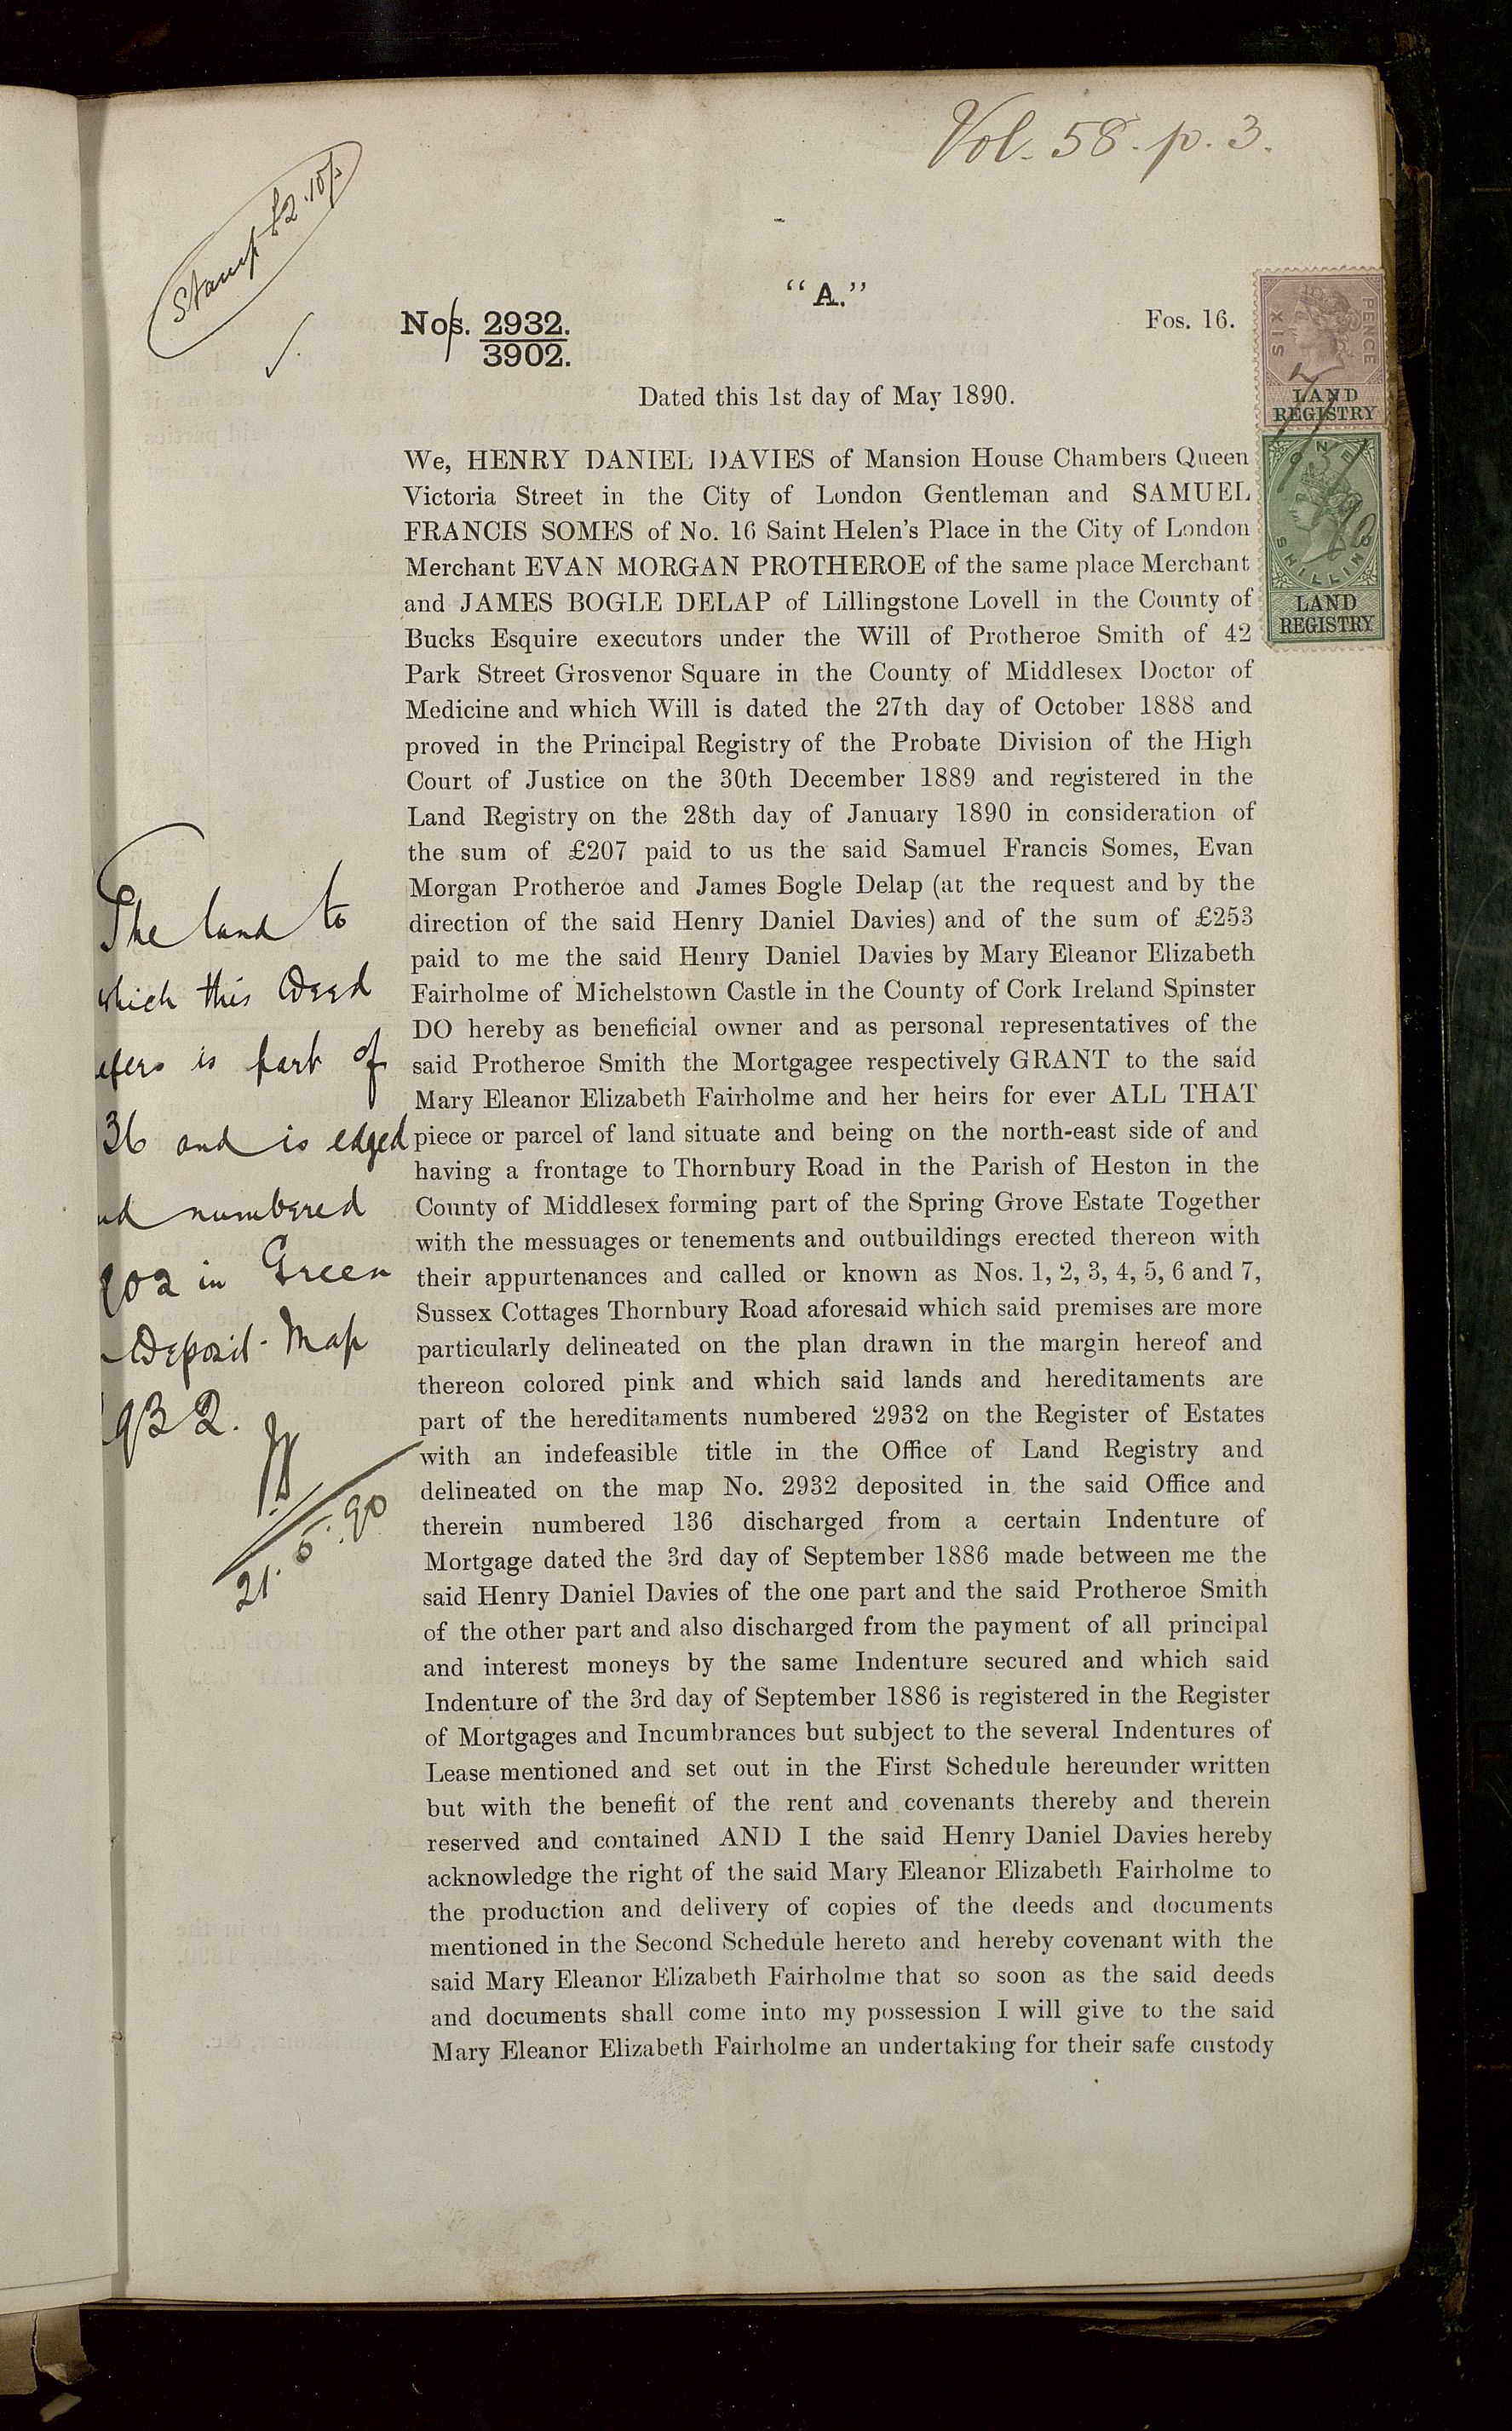 Vol. 58. p. 3.
Stamp £2.10/-
"A."
Nos. 2932.
3902.
Fos. 16.
SIX PENCE
LAND
REGISTRY
ONE
SHILLING
LAND
REGISTRY
Dated this 1st day of May 1890.
We, HENRY DANIEL DAVIES of Mansion House Chambers Queen
Victoria Street in the City of London Gentleman and SAMUEL
FRANCIS SOMES of No. 16 Saint Helen's Place in the City of London
Merchant EVAN MORGAN PROTHEROE of the same place Merchant
and JAMES BOGLE DELAP of Lillingstone Lovell in the County of
Bucks Esquire executors under the Will of Protheroe Smith of 42
Park Street Grosvenor Square in the County of Middlesex Doctor of
Medicine and which Will is dated the 27th day of October 1888 and
proved in the Principal Registry of the Probate Division of the High
Court of Justice on the 30th December 1889 and registered in the
Land Registry on the 28th day of January 1890 in consideration of
the sum of £207 paid to us the said Samuel Francis Somes, Evan
Morgan Protheroe and James Bogle Delap (at the request and by the
direction of the said Henry Daniel Davies) and of the sum of £253
paid to me the said Henry Daniel Davies by Mary Eleanor Elizabeth
Fairholme of Michelstown Castle in the County of Cork Ireland Spinster
DO hereby as beneficial owner and as personal representatives of the
said Protheroe Smith the Mortgagee respectively GRANT to the said
Mary Eleanor Elizabeth Fairholme and her heirs for ever ALL THAT
piece or parcel of land situate and being on the north-east side of and
having a frontage to Thornbury Road in the Parish of Heston in the
County of Middlesex forming part of the Spring Grove Estate Together
with the messuages or tenements and outbuildings erected thereon with
their appurtenances and called or known as Nos. 1, 2, 3, 4, 5, 6 and 7,
Sussex Cottages Thornbury Road aforesaid which said premises are more
particularly delineated on the plan drawn in the margin hereof and
thereon colored pink and which said lands and hereditaments are
part of the hereditaments numbered 2932 on the Register of Estates
with an indefeasible title in the Office of Land Registry and
delineated on the map No. 2932 deposited in the said Office and
therein numbered 136 discharged from a certain Indenture of
Mortgage dated the 3rd day of September 1886 made between me the
said Henry Daniel Davies of the one part and the said Protheroe Smith
of the other part and also discharged from the payment of all principal
and interest moneys by the same Indenture secured and which said
Indenture of the 3rd day of September 1886 is registered in the Register
of Mortgages and Incumbrances but subject to the several Indentures of
Lease mentioned and set out in the First Schedule hereunder written
but with the benefit of the rent and covenants thereby and therein
reserved and contained AND I the said Henry Daniel Davies hereby
acknowledge the right of the said Mary Eleanor Elizabeth Fairholme to
the production and delivery of copies of the deeds and documents
mentioned in the Second Schedule hereto and hereby covenant with the
said Mary Eleanor Elizabeth Fairholme that so soon as the said deeds
and documents shall come into my possession I will give to the said
Mary Eleanor Elizabeth Fairholme an undertaking for their safe custody
The land to
which this Deed
efers is part of
36 and is edged
nd numbered
902 in Green
Deposit Map
932.
21.5.90